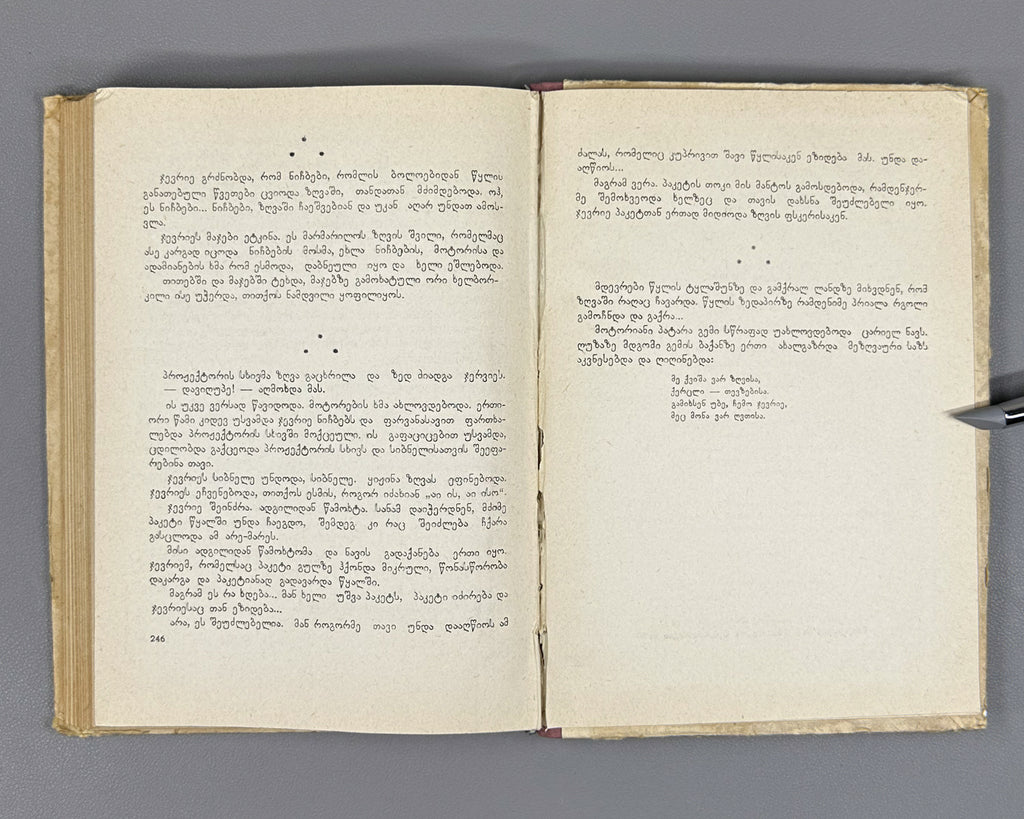 ჯევრიე გრძნობდა, რომ ნიჩბები, რომლის ბოლოებიდან წყლის
განათებული წვეთები ცვიოდა ზღვაში, თანდათან მძიმდებოდა. ოჰ,
ეს ნიჩბები... ნიჩბები, ზღვაში ჩაეშვებიან და უკან აღარ უნდათ ამოს-
ვლა.
ჯევრიეს მაჯები ეტკინა. ეს მარმარილოს ზღვის შვილი, რომელმაც
ასე კარგად იცოდა ნიჩბების მოსმა, ეხლა ნიჩბების, მოტორისა და
ადამიანების ხმა რომ ესმოდა, დაბნეული იყო და ხელი ეშლებოდა.
თითებში და მაჯებში ტეხდა, მაჯებზე გამოხატული ორი ხელბორ-
კილი ისე უჭერდა, თითქოს ნამდვილი ყოფილიყოს.
პროჟექტორის სხივმა ზღვა გაცხრილა და ზედ მიადგა ჯერვიეს.
— დავიღუპე! — აღმოხდა მას.
ის უკვე ვერსად წავიდოდა. მოტორების ხმა ახლოვდებოდა. ერთი-
ორი წამი კიდევ უსვამდა ჯევრიე ნიჩბებს და ფარვანასავით ფართხა-
ლებდა პროჟექტორის სხივში მოქცეული. ის გაფაციცებით უსვამდა,
ცდილობდა გაქცეოდა პროჟექტორის სხივს და სიბნელისათვის შეეფა-
რებინა თავი.
ჯევრიეს სიბნელე უნდოდა, სიბნელე. ყიჟინა ზღვას ეფინებოდა.
ჯევრიეს ეჩვენებოდა, თითქოს ესმის, როგორ იძახიან „აი ის, აი ისო“.
ჯევრიე შეინძრა. ადგილიდან წამოხტა. სანამ დაიჭერდნენ, მძიმე
პაკეტი წყალში უნდა ჩაეგდო, შემდეგ კი რაც შეიძლება ჩქარა
გასცლოდა ამ არე-მარეს.
მისი ადგილიდან წამოხტომა და ნავის გადაქანება ერთი იყო.
ჯევრიემ, რომელსაც პაკეტი გულზე ჰქონდა მიკრული, წონასწორობა
დაკარგა და პაკეტიანად გადავარდა წყალში.
მაგრამ ეს რა ხდება... მან ხელი უშვა პაკეტს, პაკეტი იძირება და
ჯევრიესაც თან ეზიდება...
არა, ეს შეუძლებელია. მან როგორმე თავი უნდა დააღწიოს ამ
246
ძალას, რომელიც კუპრივით შავი წყლისაკენ ეზიდება მას. უნდა და-
აღწიოს...
მაგრამ ვერა. პაკეტის თოკი მის მანტოს გამოსდებოდა, რამდენჯერ-
მე შემოხვეოდა ხელზეც და თავის დახსნა შეუძლებელი იყო.
ჯევრიე პაკეტთან ერთად მიდიოდა ზღვის ფსკერისაკენ.
მდევრები წყლის ტყლაშუნზე და გამქრალ ლანდზე მიხვდნენ, რომ
ზღვაში რაღაც ჩავარდა. წყლის ზედაპირზე რამდენიმე პრიალა რგოლი
გამოჩნდა და გაქრა...
მოტორიანი პატარა გემი სწრაფად უახლოვდებოდა ცარიელ ნავს.
ღუზაზე მდგომი გემის ბაქანზე ერთი ახალგაზრდა მეზღვაური საზს
აკვნესებდა და ღიღინებდა:
მე ქვიშა ვარ ზღვისა,
ქერცლი — თევზებისა.
გამიხსენ უბე, ჩემო ჯევრიე,
მეც მონა ვარ ღვთისა.